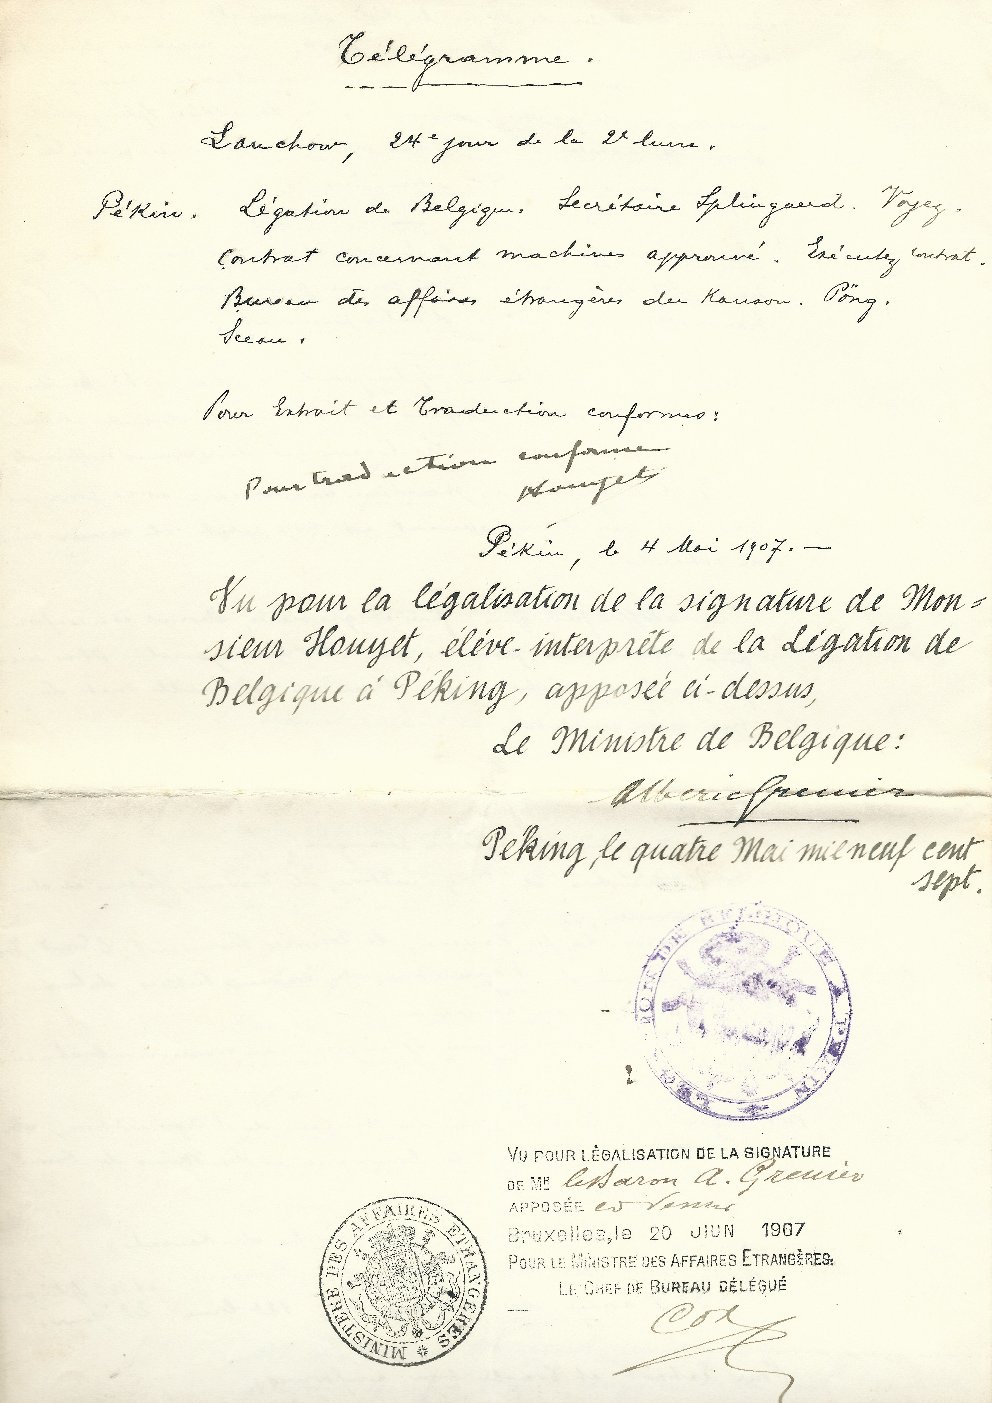 Télégramme.
Lanchow, 24e jour de la 2e lune.
Pékin. Légation de Belgique. Secrétaire Splingaerd. Voyez.
Contrat concernant machines approuvé. Exécutez contrat.
Bureau des affaires étrangères du Kansou. Pöng.
Sceau.
Pour Extrait et Traduction conformes:
Pour traduction conforme
Houyet
Pékin, le 4 Mai 1907. —
Vu pour la légalisation de la signature de Mon=
sieur Houyet, élève-interprète de la Légation de
Belgique à Péking, apposée ci-dessus,
Le Ministre de Belgique:
Alberic Grenier
Péking, le quatre Mai mil neuf cent
sept.
LEGATION DE BELGIQUE A PEKIN
VU POUR LÉGALISATION DE LA SIGNATURE
DE MR le Baron A. Grenier
APPOSÉE
Bruxelles, le 20 JUIN 1907
POUR LE MINISTRE DES AFFAIRES ETRANGÈRES:
LE CHEF DE BUREAU DÉLÉGUÉ
MINISTERE DES AFFAIRES ETRANGERES